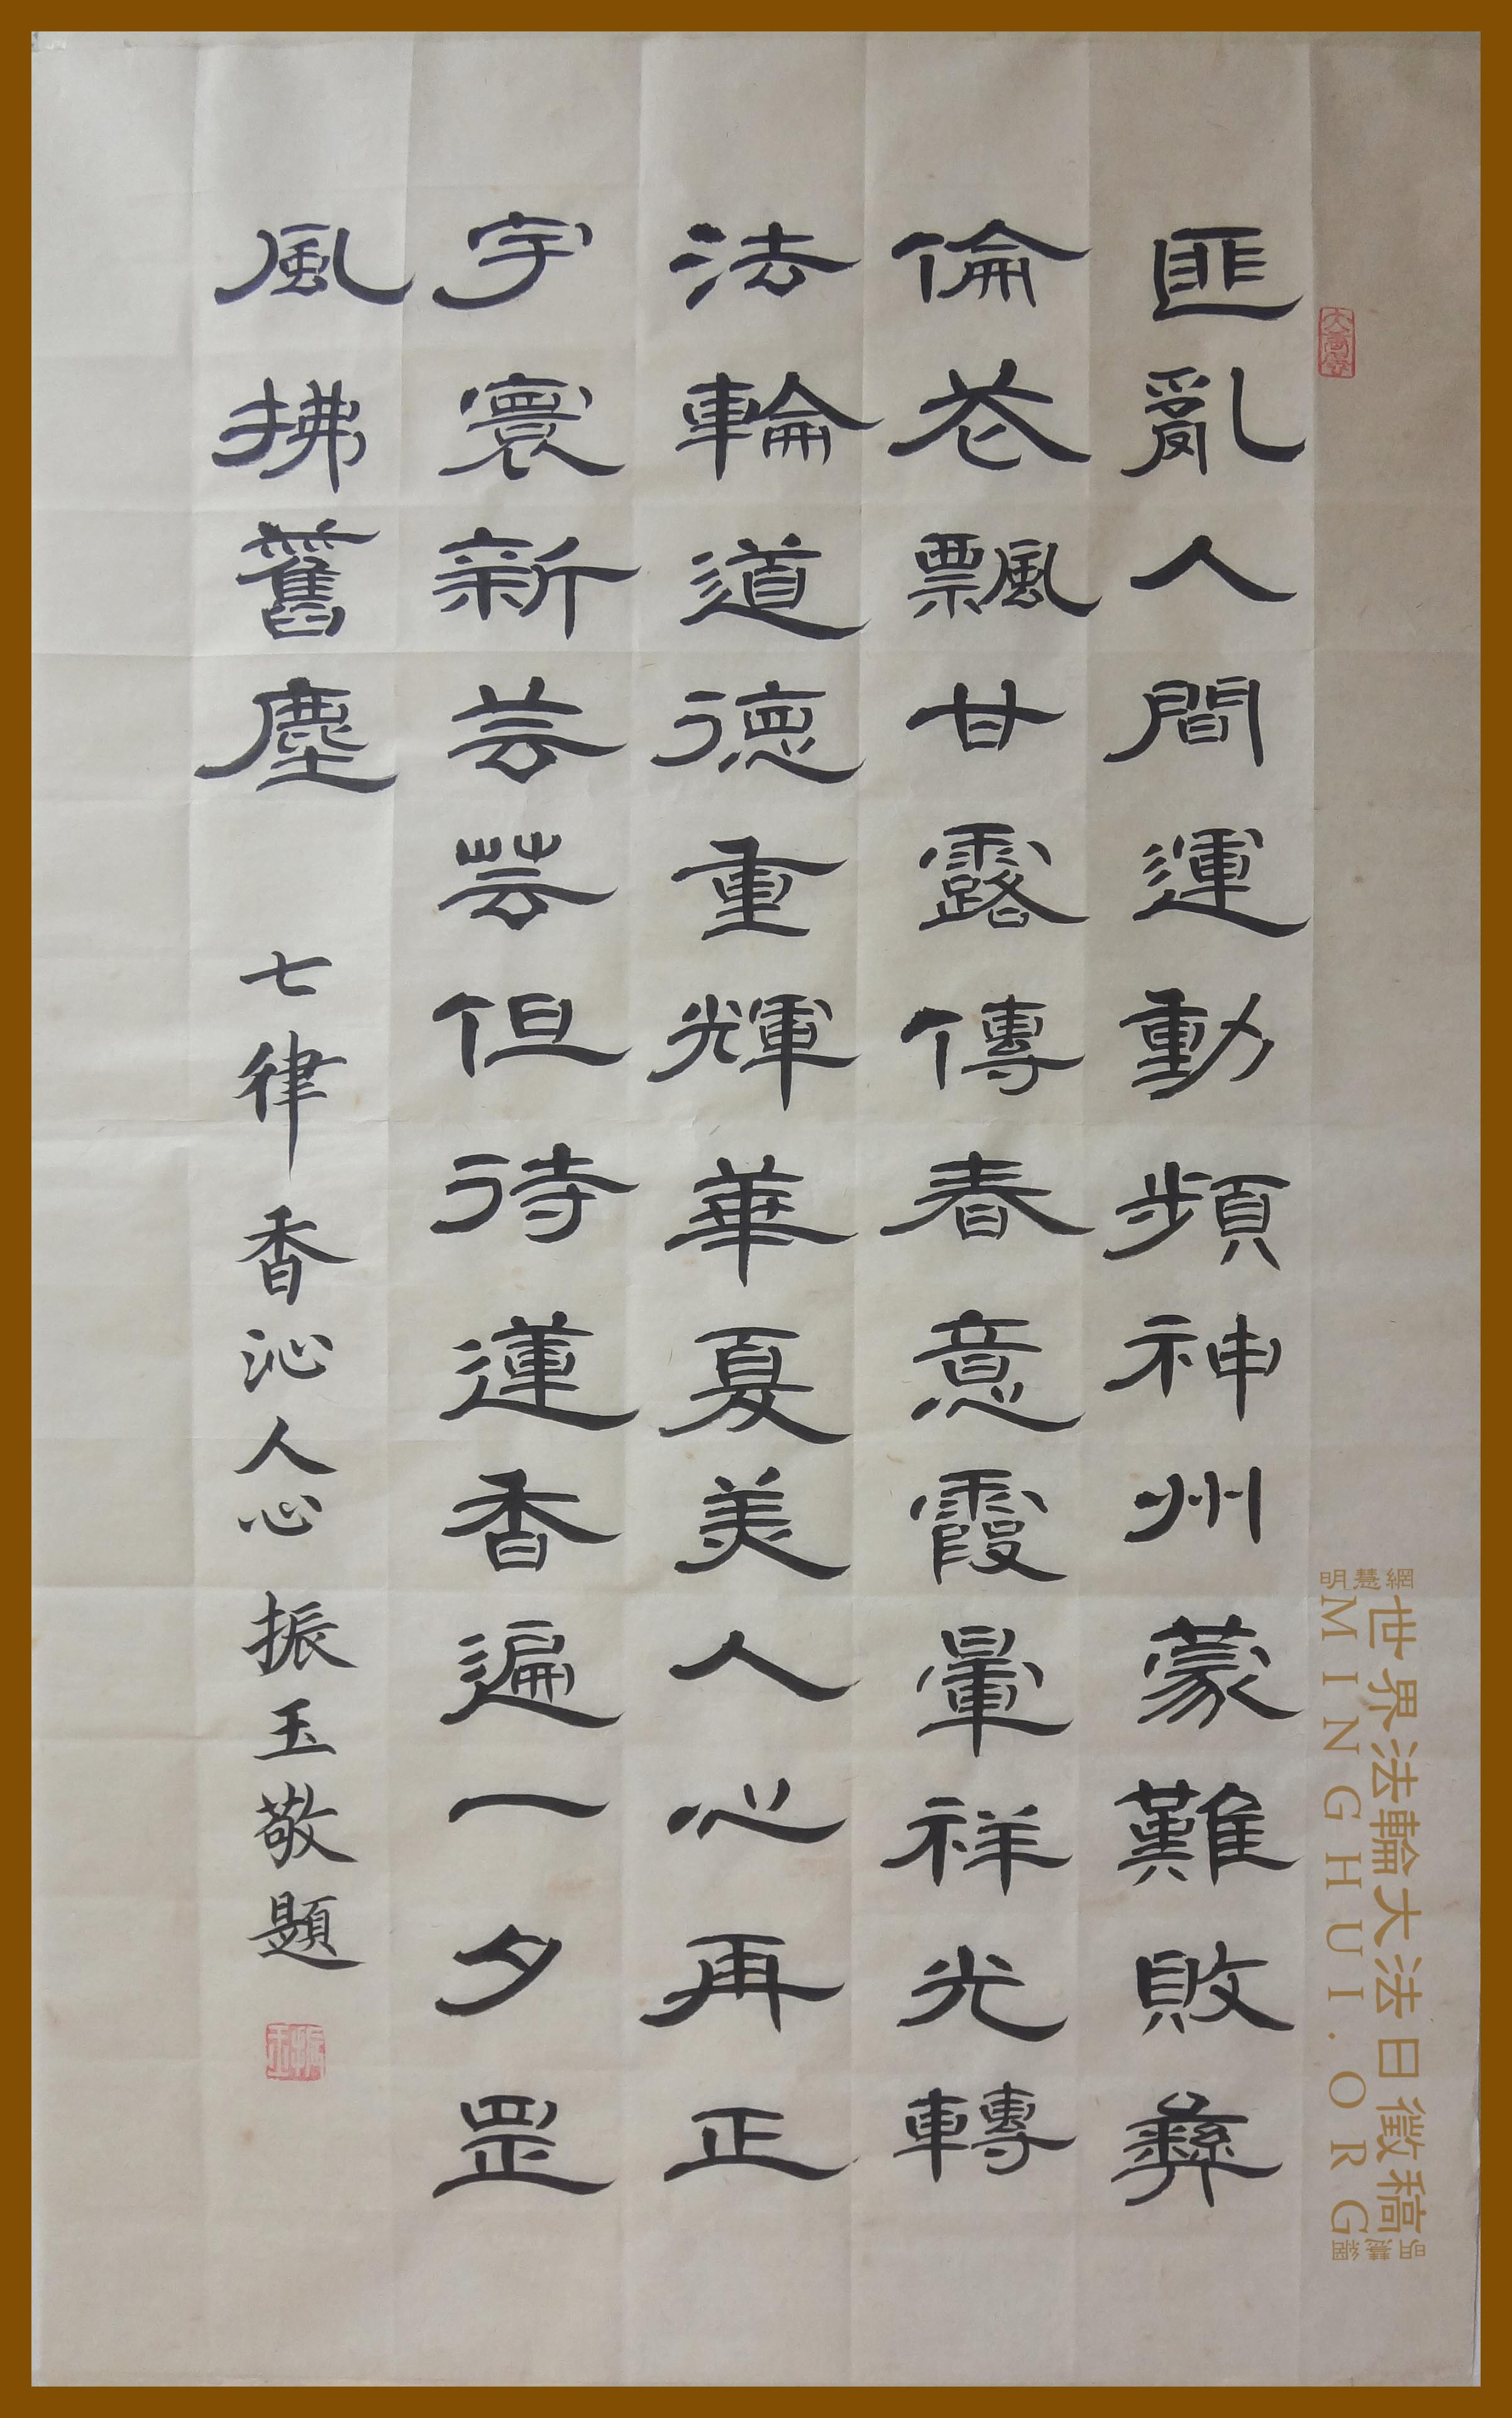 匪亂人間運動頻神州蒙難敗彝
倫花飄甘露傳春意霞暈祥光轉
法輪道德重輝華夏美人心再正
宇寰新芸芸但待蓮香遍一夕罡
風拂舊塵 七律 香沁人心 振玉敬題
明慧網
世界法輪大法日徵稿
MINGHUI.ORG
明慧網